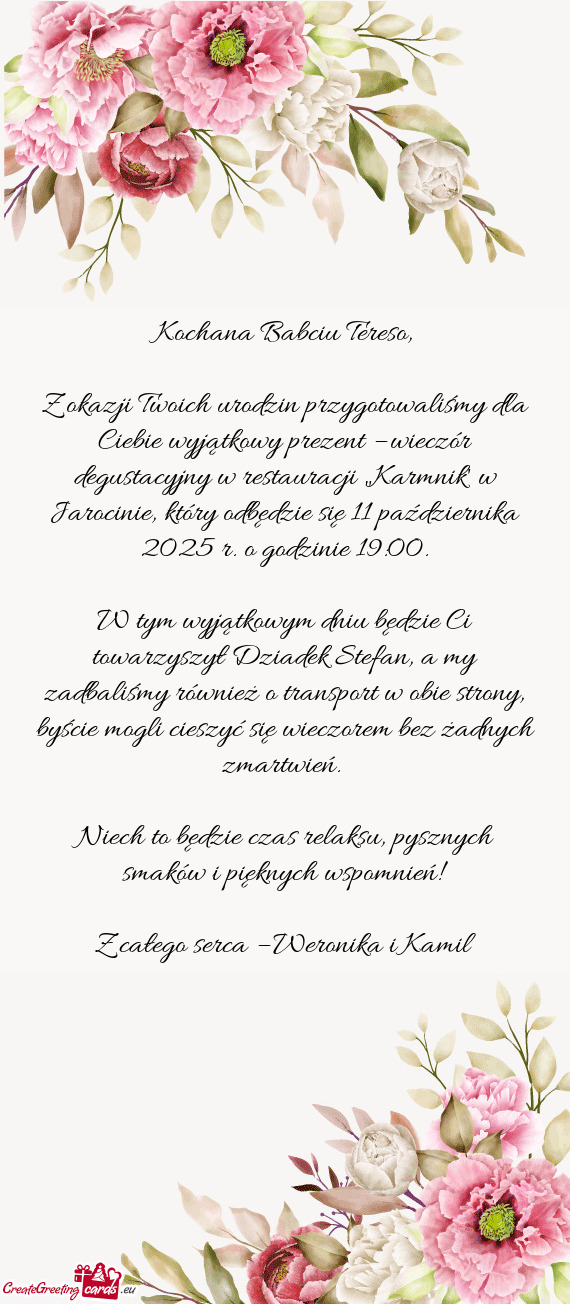 Kochana Babciu Tereso,
Z okazji Twoich urodzin przygotowaliśmy dla
Ciebie wyjątkowy prezent – wieczór
degustacyjny w restauracji „Karmnik" w
Jarocinie, który odbędzie się 11 października
2025 r. o godzinie 19:00.
W tym wyjątkowym dniu będzie Ci
towarzyszył Dziadek Stefan, a my
zadbaliśmy również o transport w obie strony,
byście mogli cieszyć się wieczorem bez żadnych
zmartwień.
Niech to będzie czas relaksu, pysznych
smaków i pięknych wspomnień!
Z całego serca – Weronika i Kamil
CreateGreeting cards .eu